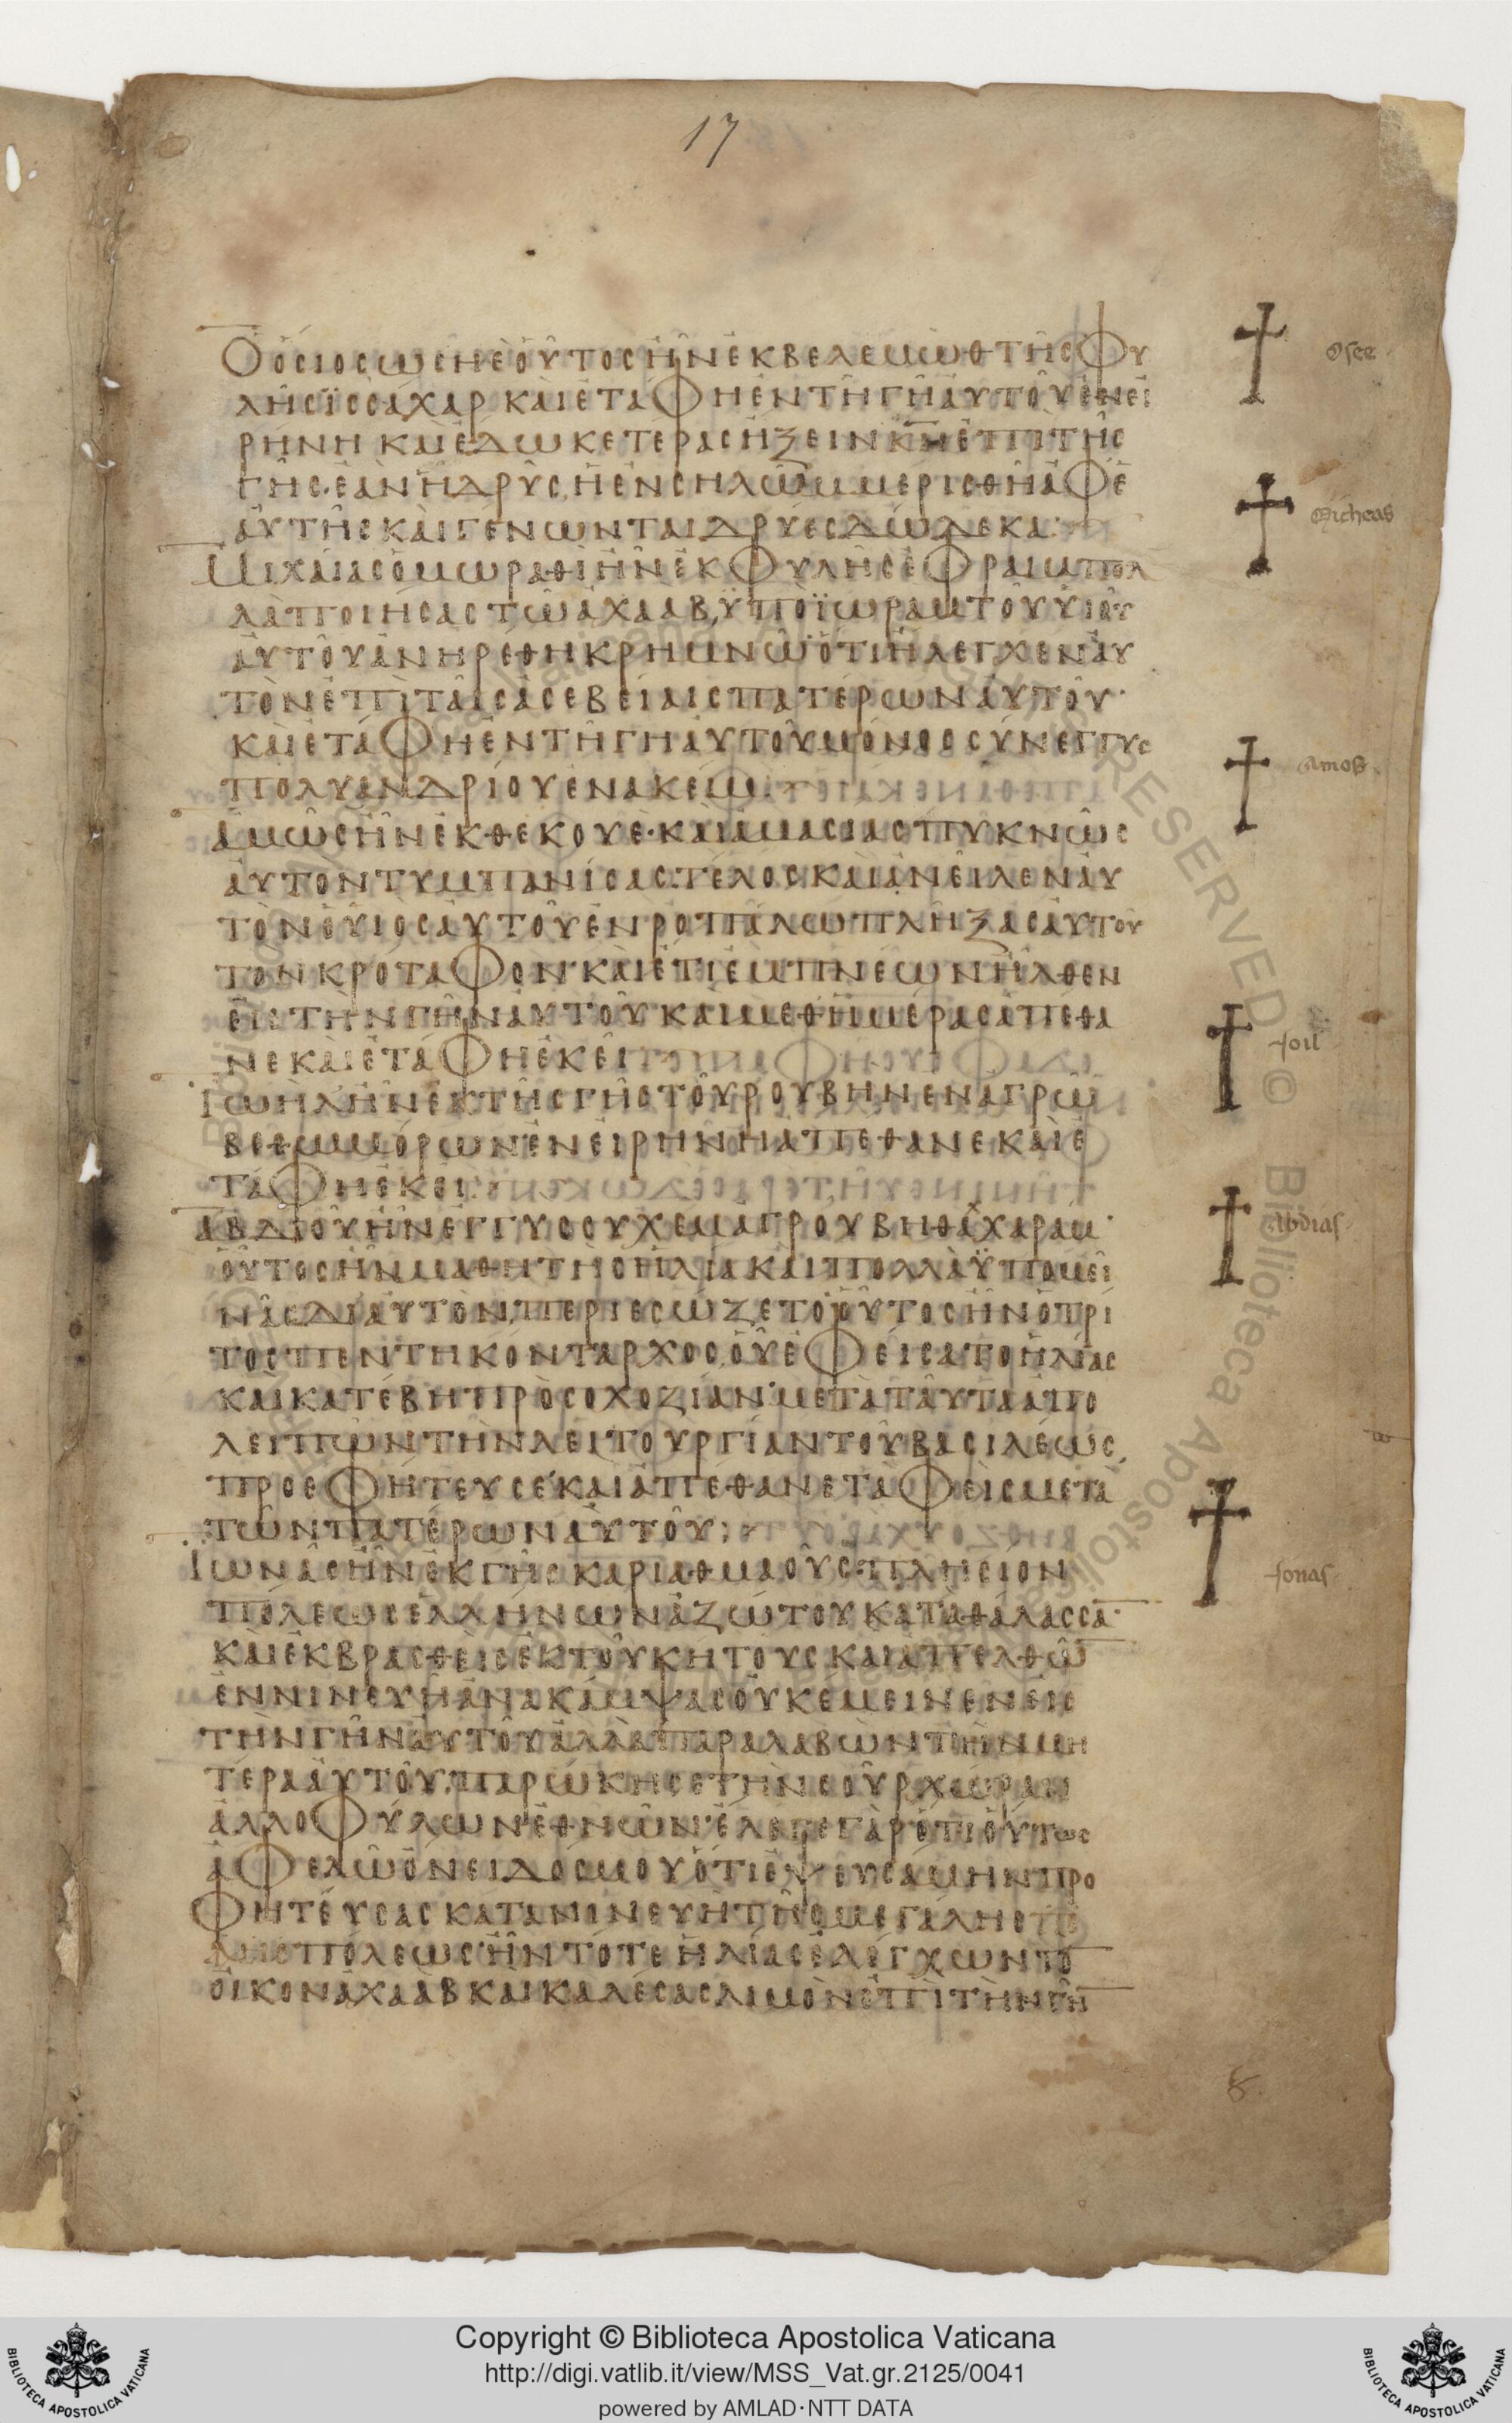 17
Ὁ ὅσιος ὡσηὲ οὗτος ἦν ἐκ βελεμὼθ τῆς φυ
λῆς ϊσσάχαρ καὶ ἐτάφη ἐν τῆ γῆ αὐτοῦ ἐν εἰ
ρήνη καὶ ἔδωκε τέρας ἥξειν κ̅ν̅ ἐπὶ τῆς
γῆς ἐὰν ἡ δρῦς ἡ ἐν σηλὼμ μερισθῆ ἀφ ἑ
αυτῆς καὶ γένωνται δρύες δώδεκα
Μιχαίας ὁ μωραθὶ ἦν ἐκ φυλῆς ἐφραὶμ πολ
λὰ ποιήσας τῶ ἀχαάβ, ὑπὸ ϊωρὰμ τοῦ υἱοῦ
αὐτοῦ ἀνηρέθη κρημνῶ ὅτι ἤλεγχεν αὐ
τὸν ἐπὶ ταῖς ἀσεβείαις πατέρων αὐτοῦ
καὶ ἐτάφη ἐν τῆ γῆ αὐτοῦ μόνος σύνεγγυς
πολυανδρίου ἐνακείμ
Ἀμὼς ἦν ἐκ θεκουέ καὶ ἀμασίας πυκνῶς
αὐτὸν τυμπανίσας τέλος καὶ ἀνεῖλεν αὐ
τὸν ὁ υἱὸς αὐτοῦ ἐν ροπάλω πλήξας αὐτοῦ
τὸν κρόταφον καὶ ἔτι ἐμπνέων ἦλθεν
εἰς τὴν γῆν αὐτοῦ καὶ μεθ ἡμέρας ἀπέθα
νε καὶ ἐτάφη ἐκεῖ
Ἰωὴλ ἦν ἐκ τῆς γῆς τοῦ ρουβὴν ἐν ἀγρῶ
βεθωμόρων ἐν εἰρήνη ἀπέθανε καὶ ἐ
τάφη ἐκεῖ
Ἀβδιοὺ ἦν ἐγγὺς συχὲμ ἀγροῦ βηθαχαράμ
οὗτος ἦν μαθητὴς ἠλία καὶ πολλὰ ὑπομεί
νας δι αὐτὸν περιεσώζετο οὗτος ἦν ὁ τρί
τος πεντηκόνταρχος οὗ ἐφείσατο ἠλίας
καὶ κατέβη πρὸς ὀχοζίαν μετὰ ταῦτα ἀπο
λειπὼν τὴν λειτουργίαν τοῦ βασιλέως
προεφήτευσε καὶ ἀπέθανε ταφεὶς μετὰ
τῶν πατέρων αὐτοῦ
Ἰωνᾶς ἦν ἐκ γῆς καριαθμαοῦς πλησίον
πόλεως ἑλλήνων ἀζώτου κατὰ θάλασσα̅
καὶ ἐκβρασθεὶς ἐκ τοῦ κήτους καὶ ἀπελθὼ̅
ἐν νινευὴ ἀνακάμψας οὐκ ἔμεινεν εἰς
τὴν γῆν αὐτοῦ ἀλλὰ παραλαβὼν τὴν μη
τέρα αὐτοῦ παρώκησε τὴν σοὺρ χώραν
ἀλλοφύλων ἐθνῶν ἔλεγε γὰρ ὅτι οὕτως
ἀφελῶ ὄνειδός μου ὅτι ἐψευσάμην προ
φητεύσας κατὰ νινευὴ τῆς μεγάλης
πόλεως ἦν τότε ἠλίας ἐλέγχων τὸ̅
οἶκον ἀχαὰβ καὶ καλέσας λιμὸν ἐπὶ τὴν γῆ̅
Osee
Micheas
Amos
Joil
Abdias
Jonas
8
Copyright © Biblioteca Apostolica Vaticana
http://digi.vatlib.it/view/MSS_Vat.gr.2125/0041
powered by AMLAD·NTT DATA
BIBLIOTECA APOSTOLICA VATICANA
BIBLIOTECA APOSTOLICA VATICANA